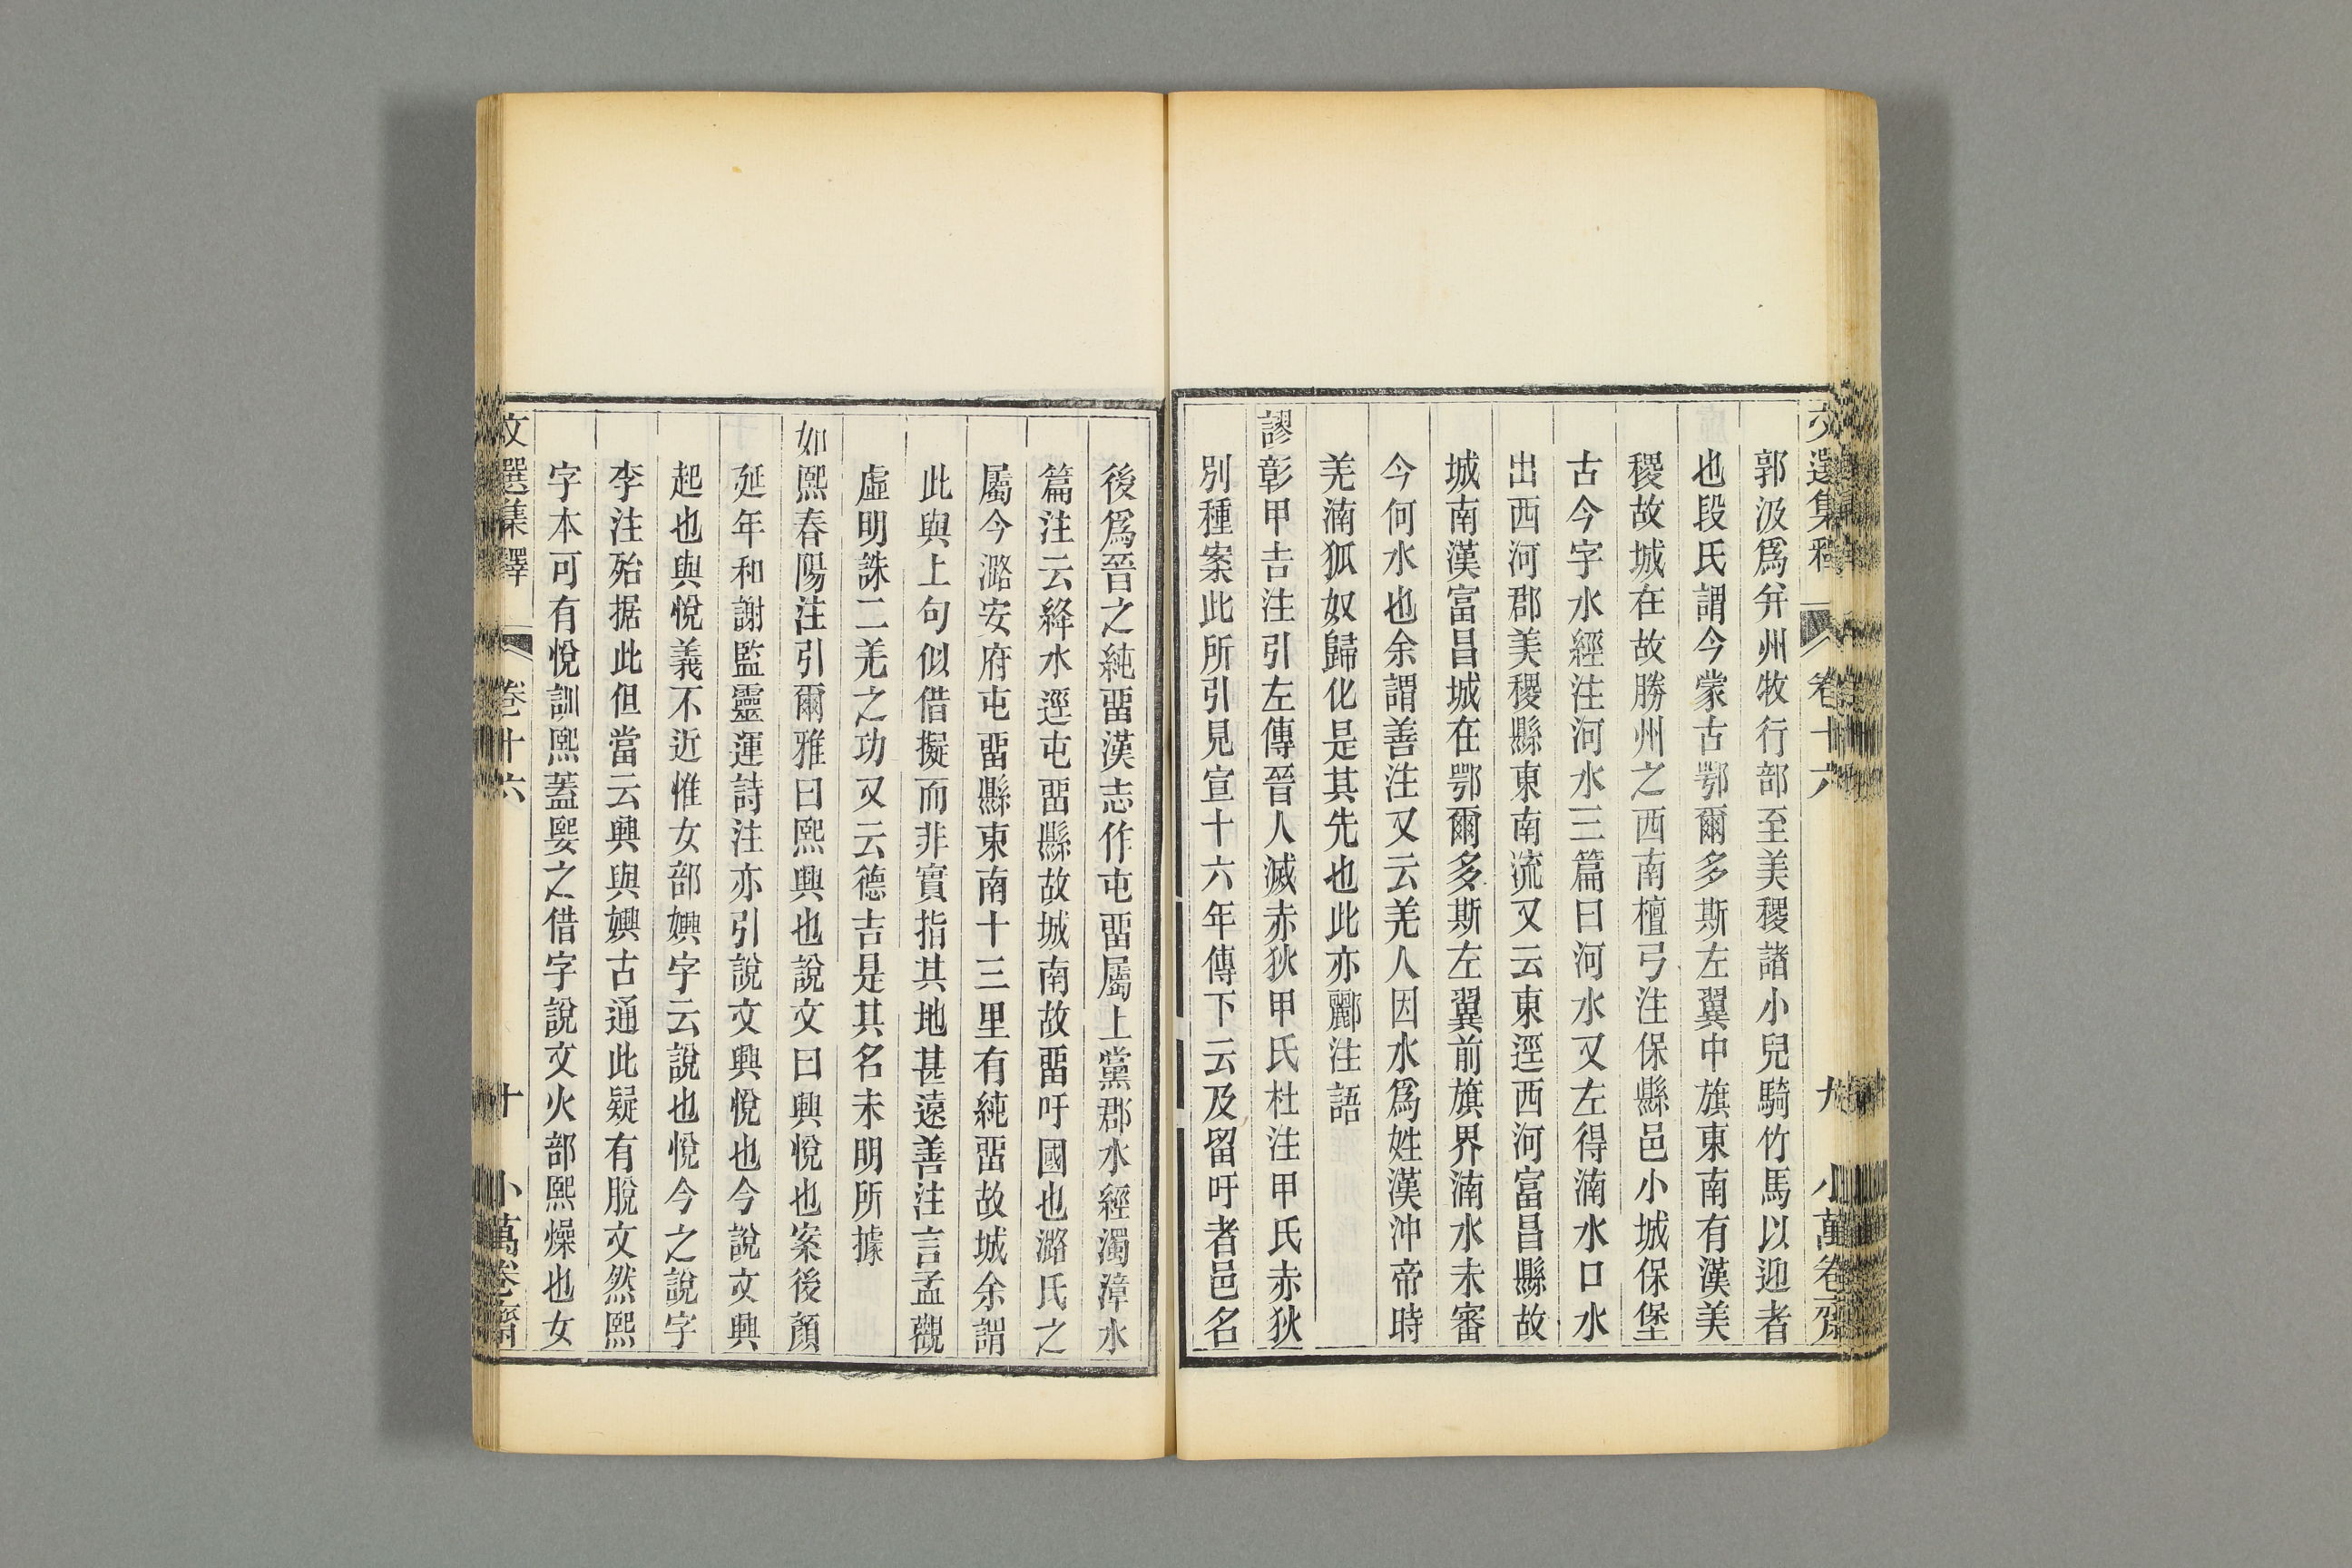 文選集釋 卷十六 九 小萬卷齋
郭汲爲幷州牧行部至美稷諸小兒騎竹馬以迎者
也段氏謂今蒙古鄂爾多斯左翼中旗東南有漢美
稷故城在故勝州之西南檀弓注保縣邑小城保堡
古今字水經注河水三篇曰河水又左得湳水口水
出西河郡美稷縣東南流又云東逕西河富昌縣故
城南漢富昌城在鄂爾多斯左翼前旗界湳水未審
今何水也余謂善注又云羌人因水爲姓漢沖帝時
羌湳狐奴歸化是其先也此亦酈注語
謬彰甲吉注引左傳晉人滅赤狄甲氏杜注甲氏赤狄
別種案此所引見宣十六年傳下云及留吁者邑名
後爲晉之純畱漢志作屯畱屬上黨郡水經濁漳水
篇注云絳水逕屯畱縣故城南故畱吁國也潞氏之
屬今潞安府屯畱縣東南十三里有純畱故城余謂
此與上句似借擬而非實指其地甚遠善注言孟觀
虛明誅二羌之功又云德吉是其名未明所據
如熙春陽注引爾雅曰熙興也說文曰興悅也案後顏
延年和謝監靈運詩注亦引說文興悅也今說文興
起也與悅義不近惟女部嬹字云說也悅今之說字
李注殆据此但當云興與嬹古通此疑有脫文然熙
字本可有悅訓熙蓋媐之借字說文火部熙燥也女
文選集釋 卷十六 十 小萬卷齋